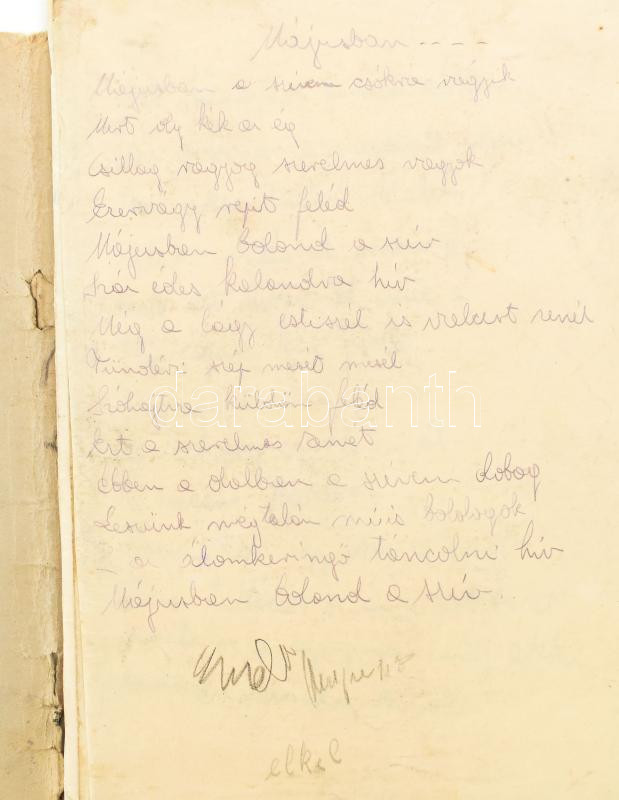 Májusban ----
Májusban a szívem csókra vágyik
Mert oly kék az ég
Csillag ragyog szerelmes vagyok
Ezer vágy repít feléd
Májusban bolond a szív
Száz édes kalandra hív
Még a lágy esti szél is valcert zenél
Tündéri szép mesét mesél
Sóhajtva küldöm feléd
Ezt a szerelmes zenét
Ebben a dalban a szívem dobog
Leszünk mégtalán miis boldogok
a álomkeringö táncolni hív
Májusban bolond a szív..
darabanth